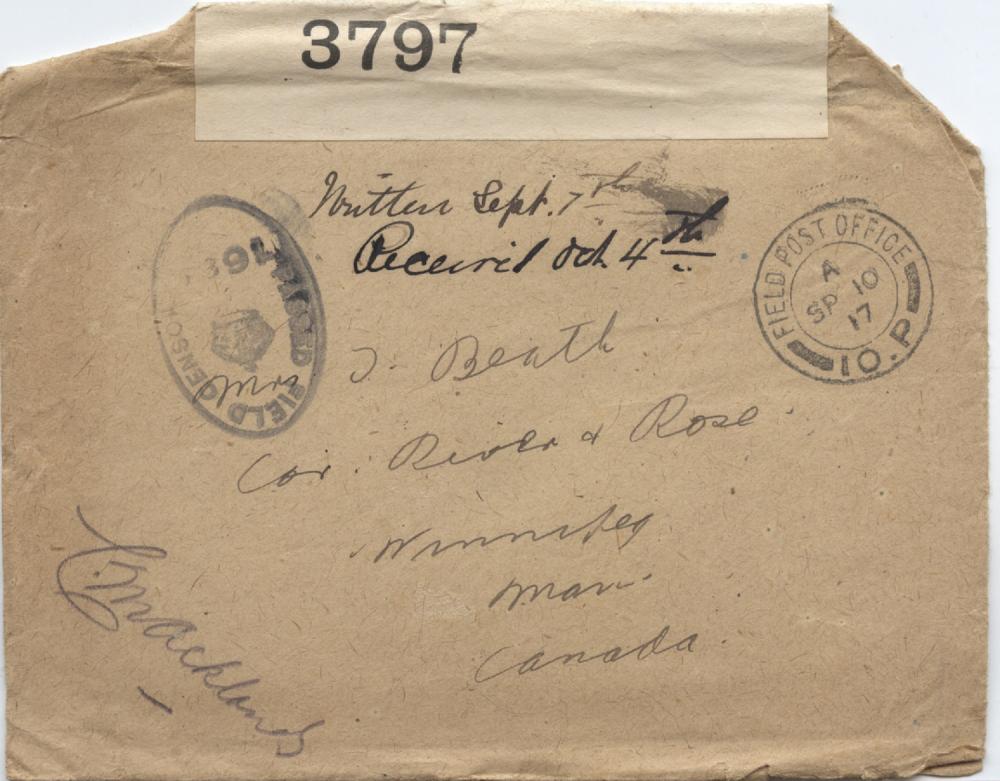 3797
Written Sept. 7th
Received Oct. 4th
FIELD POST OFFICE
A
SP 10
17
10.P
FIELD CENSOR
Mrs J. Beath
Cor. River & Rose
Winnipeg
Man.
Canada.